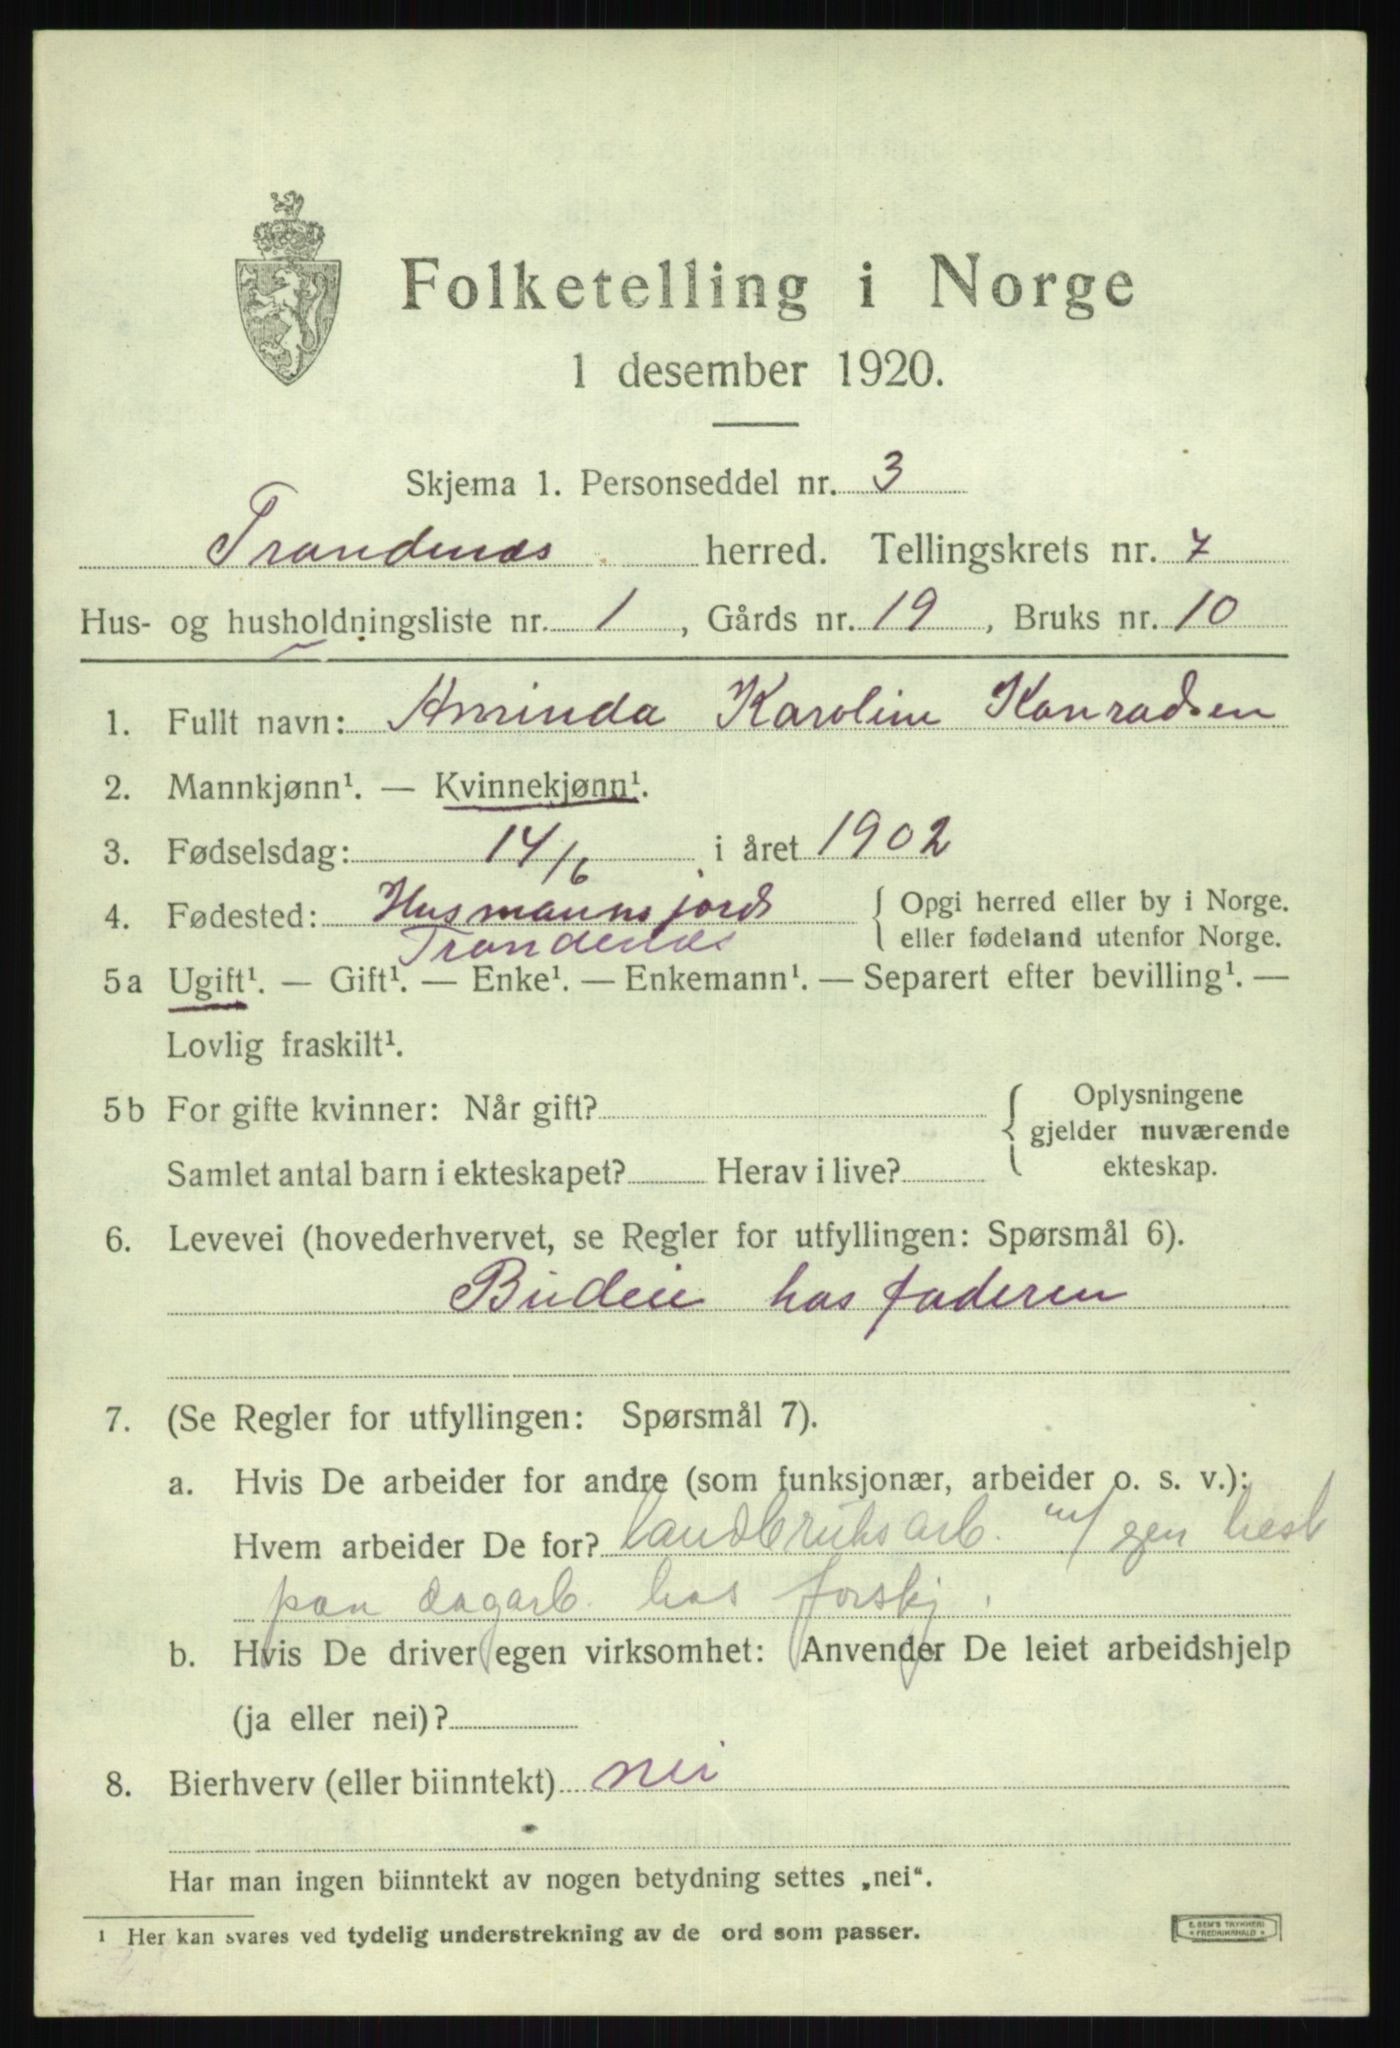 Folketelling i Norge
1 desember 1920.
Skjema 1. Personseddel nr. 3
Trondenæs herred. Tellingskrets nr. 7
Hus- og husholdningsliste nr. 1, Gårds nr. 19, Bruks nr. 10
1. Fullt navn: Aminda Karoline Konradsen
2. Mannkjønn¹. — Kvinnekjønn¹.
3. Fødselsdag: 14/6 i året 1902
4. Fødested: Husmannsjord { Opgi herred eller by i Norge.
Trondenæs eller fødeland utenfor Norge.
5a Ugift¹. — Gift¹. — Enke¹. — Enkemann¹. — Separert efter bevilling¹. —
Lovlig fraskilt¹.
5b For gifte kvinner: Når gift? { Oplysningene
gjelder nuværende
Samlet antal barn i ekteskapet? Herav i live? ekteskap.
6. Levevei (hovederhvervet, se Regler for utfyllingen: Spørsmål 6).
Budeie hos faderen
7. (Se Regler for utfyllingen: Spørsmål 7).
a. Hvis De arbeider for andre (som funksjonær, arbeider o. s. v.):
Hvem arbeider De for? landbruksarb. m/ egen hest
paa dagarb. hos forskj.
b. Hvis De driver egen virksomhet: Anvender De leiet arbeidshjelp
(ja eller nei)?
8. Bierhverv (eller biinntekt) nei
Har man ingen biinntekt av nogen betydning settes „nei“.
¹ Her kan svares ved tydelig understrekning av de ord som passer.
E. SEM'S TRYKKERI
* FREDRIKSHALD *